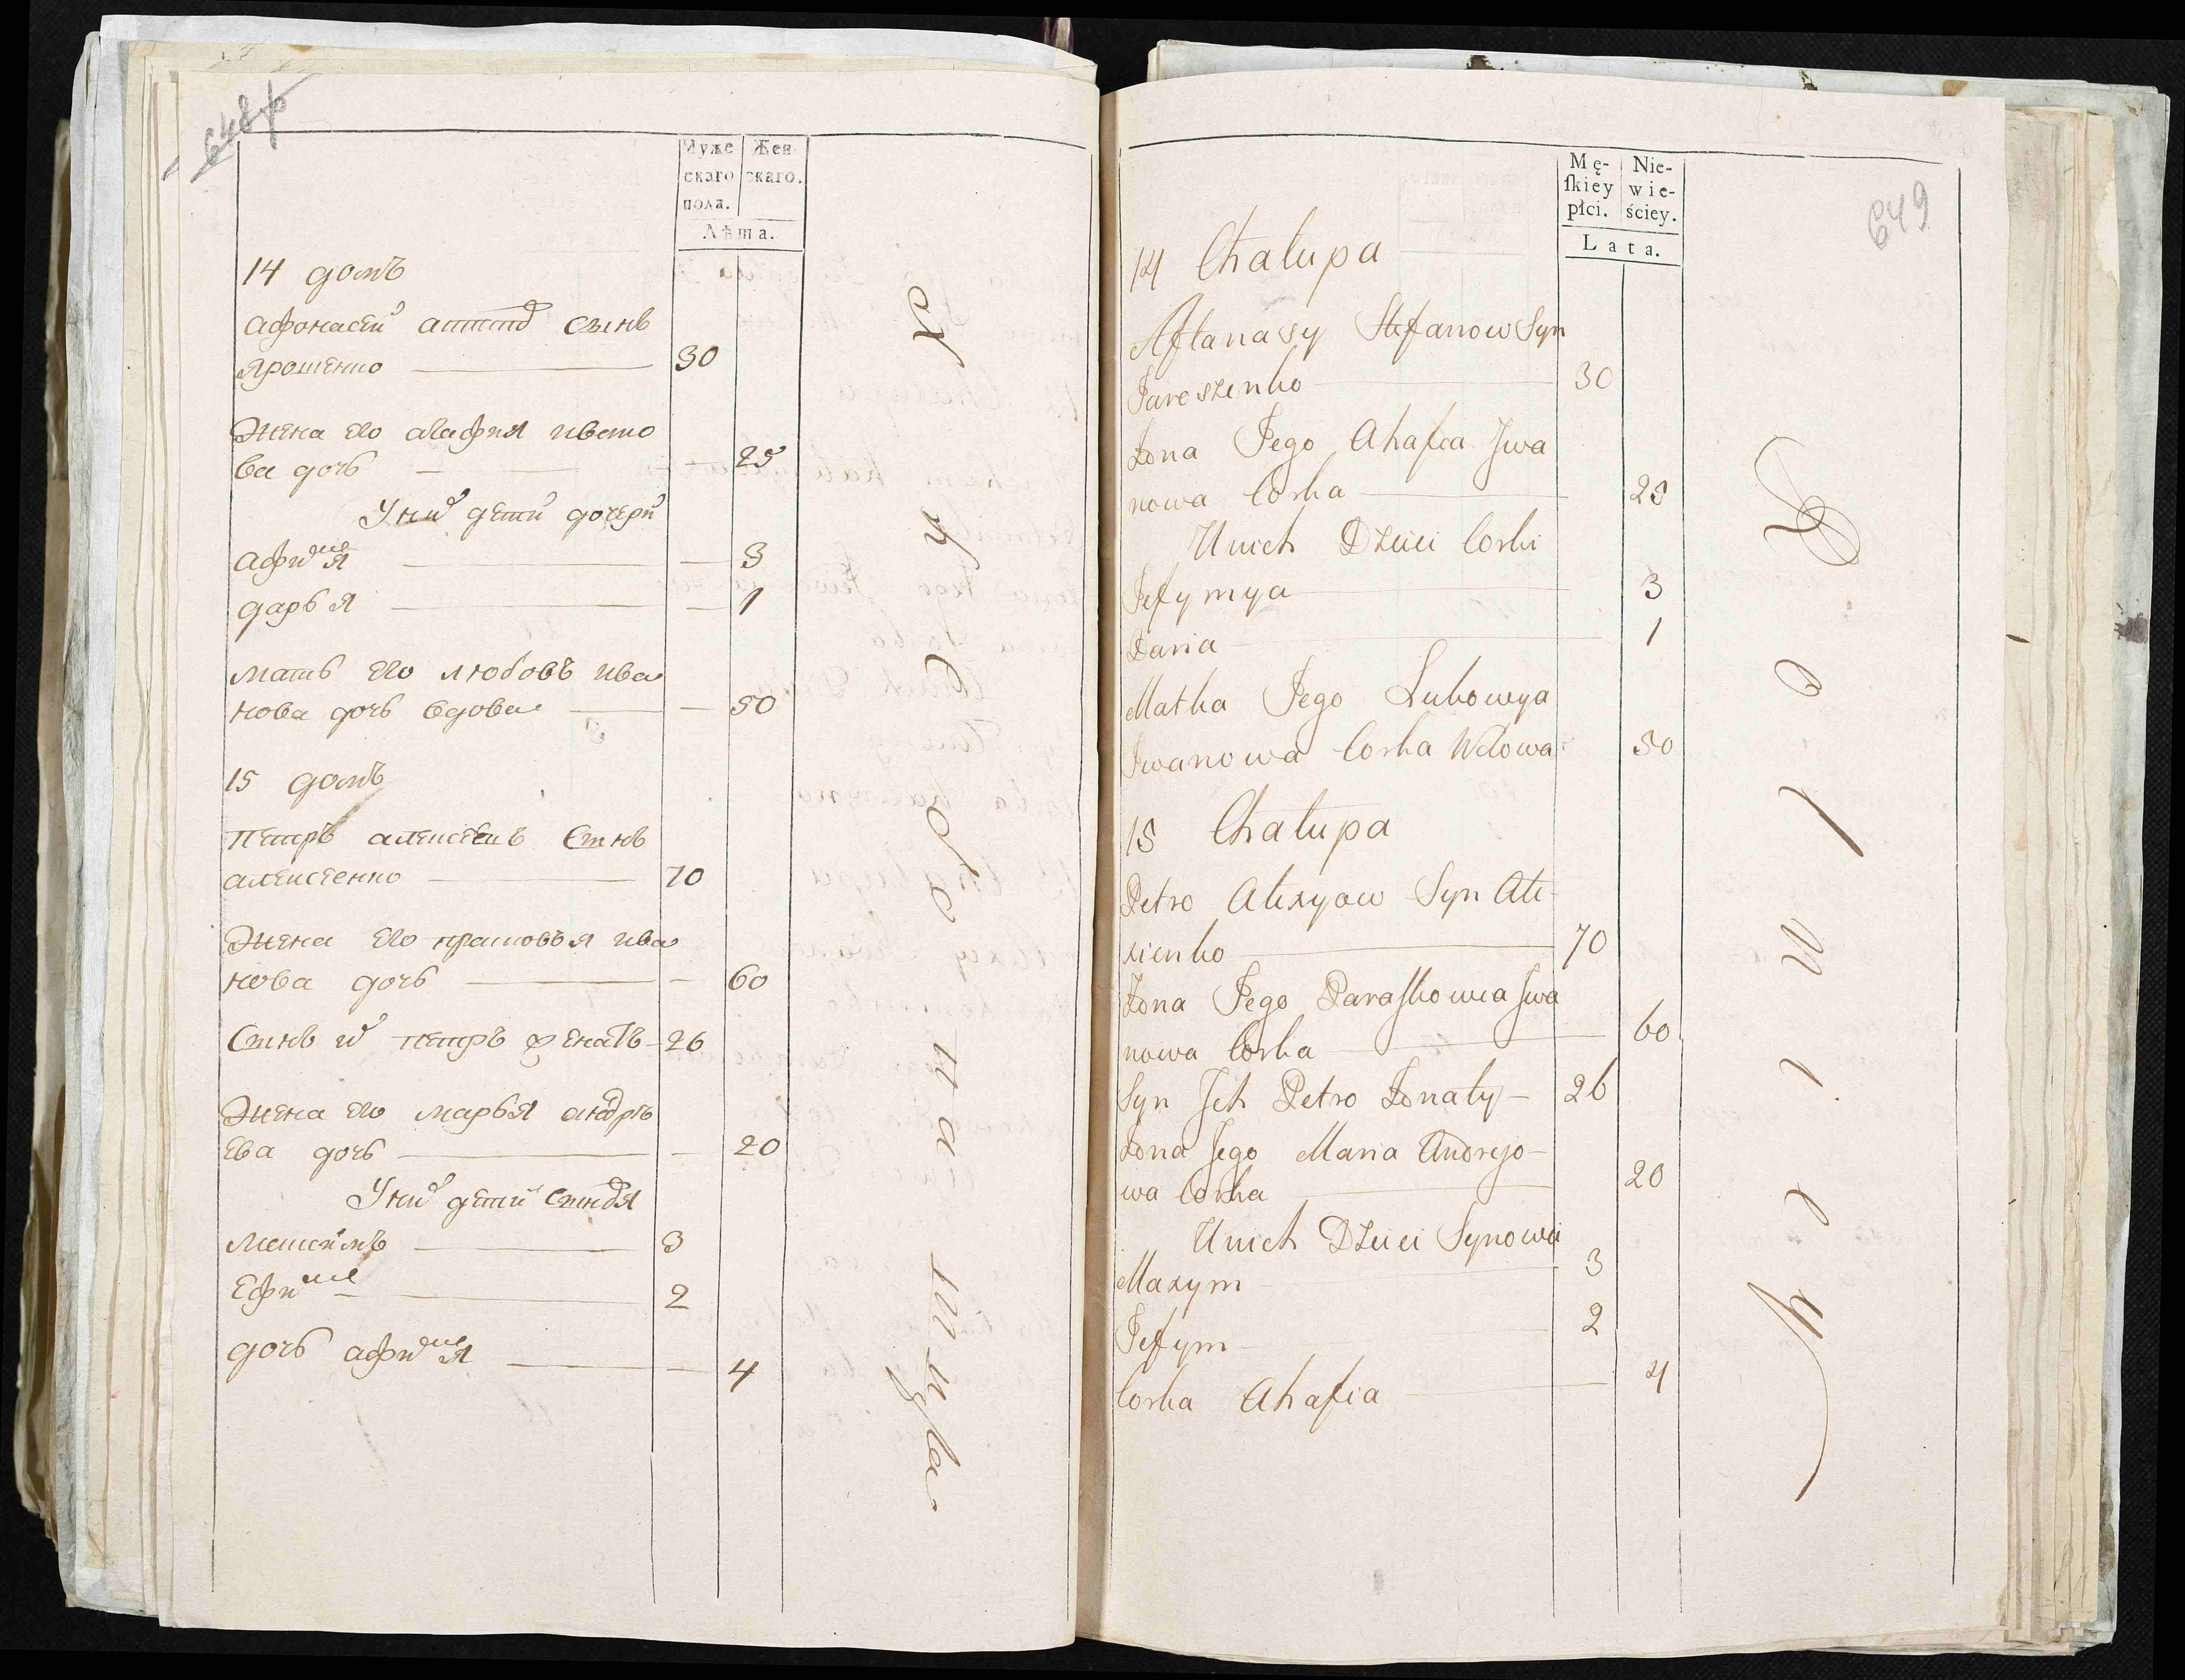 648 об
Муже
скаго
пола.
Жен
скаго.
Лѣта.
14 домъ
афонасей сынъ
ярошенко 30
жена его агафия ивано
ва дочь 25
У них дети дочери
афимия 3
дарья 1
мать его любовъ ива
нова дочь вдова 50
15 домъ
петръ алексеевъ сынъ
алексеенко 70
жена его прасковья ива
нова дочь 60
сынъ их петръ женатъ 26
жена его марья андре
ева дочь 20
У них дети сыновья
максимъ 3
Ефим 2
дочь афимия 4
Mę-
ſkiey
płci.
Nie-
wie-
ściey.
Lata.
649
14 Chałupa
Aftanasy Stefanow Syn
Jareszenko 30
Żona Jego Ahafia Jwa
nowa Corka 25
U nich Dzieci Corki
Jefymya 3
Daria 1
Matka Jego Lubowya
Jwanowa Corka Wdowa 50
15 Chałupa
Petro Alexyow Syn Ale-
xienko 70
Żona Jego Paraſkowia Jwa
nowa Corka 60
Syn Jch Petro Żonaty 26
Żona Jego Maria Andrejo-
wa Corka 20
U nich Dzieci Synowi
Maxym 3
Jefym 2
Corka Ahafia 4